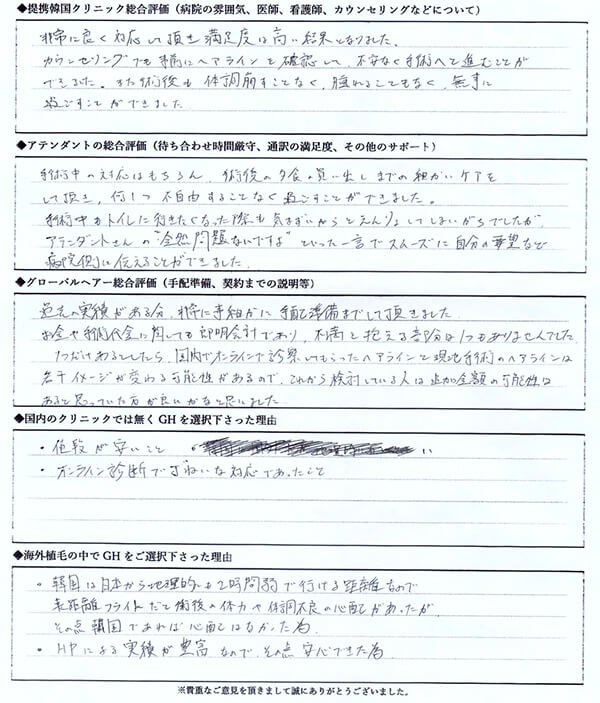 ◆提携韓国クリニック総合評価（病院の雰囲気、医師、看護師、カウンセリングなどについて）
非常に良く対応して頂き満足度は高い結果となりました。
カウンセリングでも事前にヘアラインを確認して、不安なく手術へと進むことが
できました。また術後も体調崩すことなく、腫れることもなく、無事に
過ごすことができました
◆アテンダントの総合評価（待ち合わせ時間厳守、通訳の満足度、その他のサポート）
手術中の対応はもちろん、術後の夕食の買い出しまでの細かいケアを
して頂き、何1つ不自由することなく過ごすことができました。
手術中もトイレに行きたくなった際も気まずいからとえんりょしてしまいがちでしたが、
アテンダントさんの"全然問題ないですよ"といった一言でスムーズに自分の要望など
病院側に伝えることができました
◆グローバルヘアー総合評価（手配準備、契約までの説明等）
過去の実績がある分、非常に事細かに手配準備までして頂きました
お金や手術代金に関しても即明会計であり、不満と抱える部分は1つもありませんでした
1つだけあるとしたら、国内でオンラインで診察してもらったヘアラインと現地手術のヘアラインは
若干イメージが変わる可能性があるので、これから検討している人は追加金額の可能性は
あると思っていた方が良いかなと思いました
◆国内のクリニックでは無くGHを選択下さった理由
・値段が安いこと
・オンライン診断で丁ねいな対応であったこと
◆海外植毛の中でGHをご選択下さった理由
・韓国は日本から地理的にも2時間弱で行ける距離なので
長距離フライトだと術後の体力や体調不良の心配があったが
その点韓国であれば心配はなかった為
・HPによる実績が豊富なので、その点安心できた為
※貴重なご意見を頂きまして誠にありがとうございました。